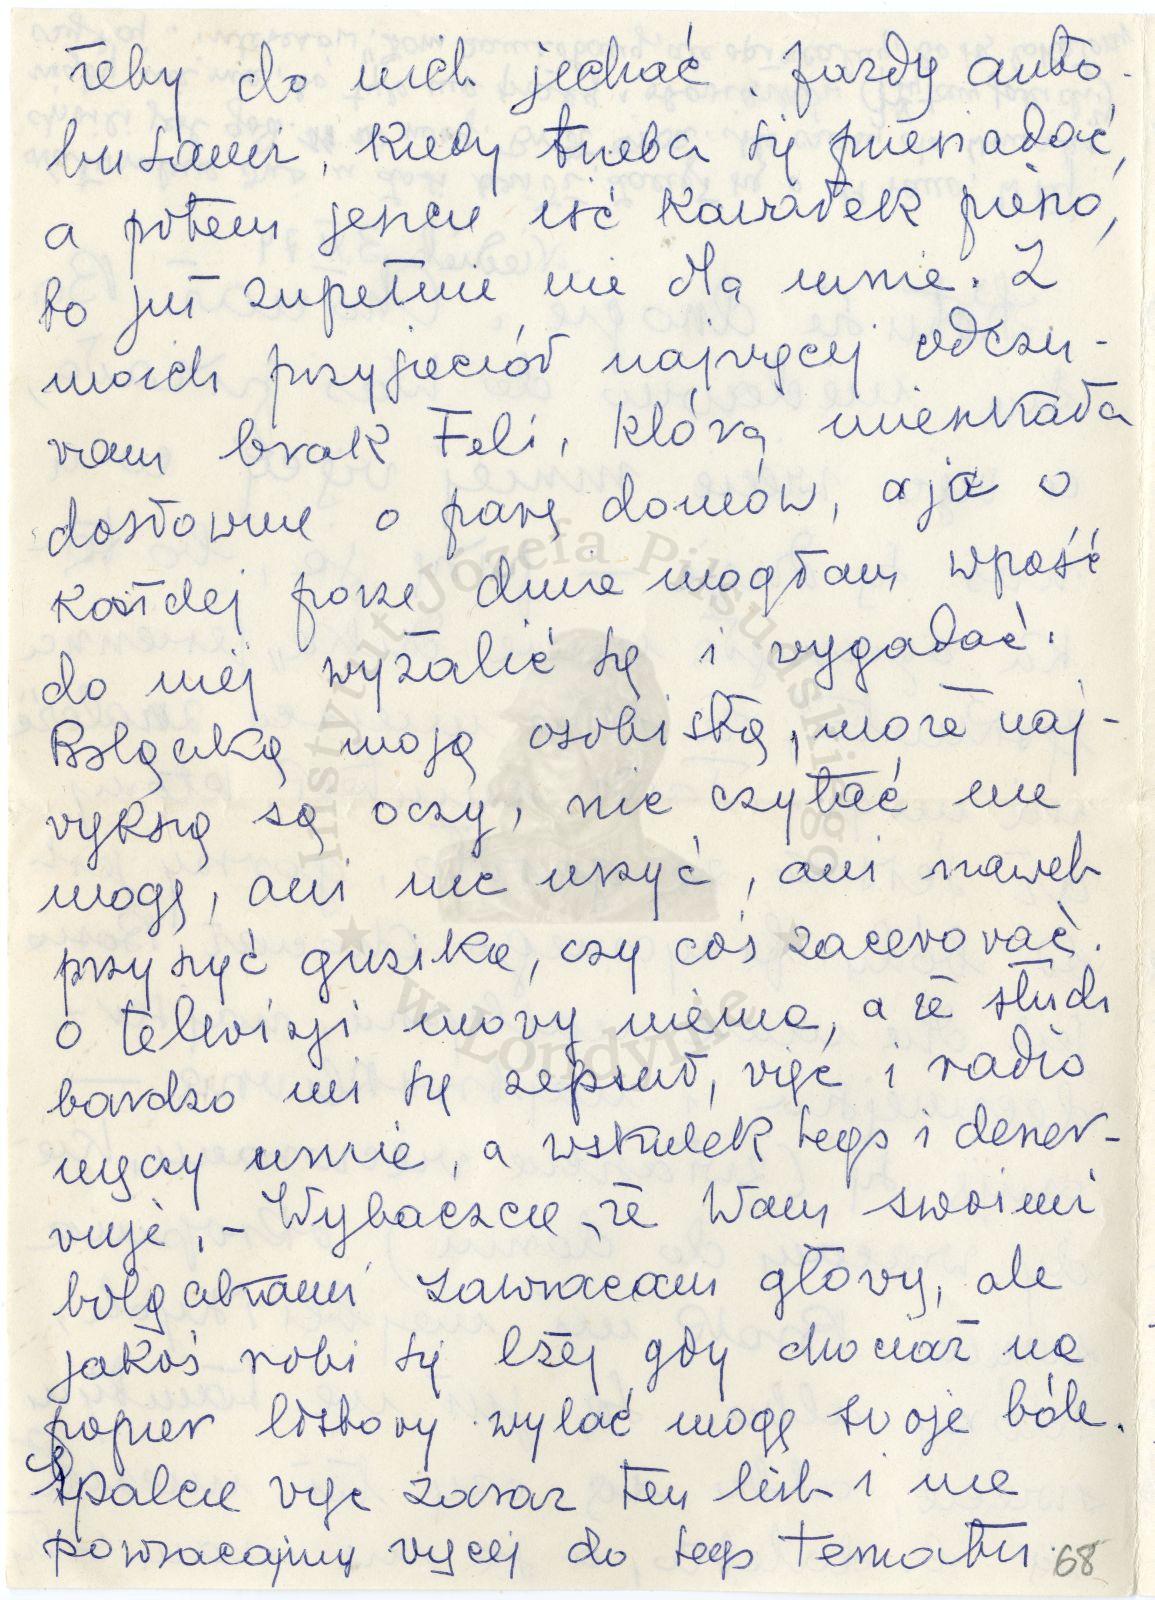 żeby do nich jechać. Jazdy auto-
busami, kiedy trzeba się przesiadać,
a potem jeszcze iść kawałek pieszo,
to już zupełnie nie dla mnie. Z
moich przyjaciół najwięcej odczu-
wam brak Feli, która mieszkała
dosłownie o parę domów, a ja o
każdej porze dnia mogłam wpaść
do niej wyżalić się i wygadać.
Bolączką moją osobistą, może naj-
większą są oczy, nic czytać nie
mogę, ani nic uszyć, ani nawet
przyszyć guzika, czy coś zacerować.
O telewizji mowy niema, a że słuch
bardzo mi się zepsuł, więc i radio
męczy mnie, a wskutek tego i dener-
wuje. – Wybaczcie, że Wam swoimi
zawracam głowy, ale
jakoś robi się lżej gdy chociaż na
papier listowy wylać mogę swoje bóle.
Spalcie więc zaraz ten list i nie
powracajmy więcej do tego tematu.
68
Instytut Józefa Piłsudskiego
w Londynie